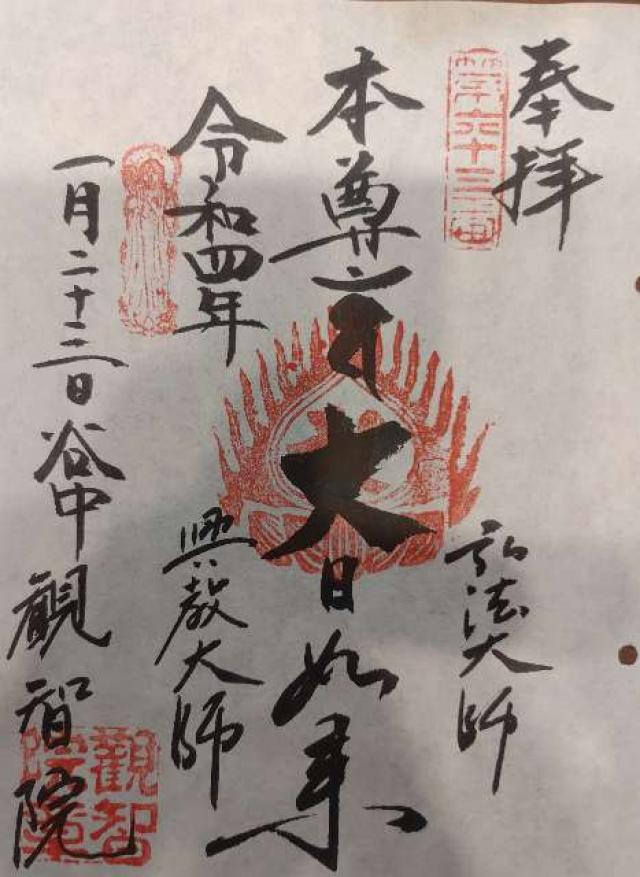 奉拝
第六十三番
弘法大師
本尊
大日如来
興教大師
令和四年
一月二十三日
谷中観智院
觀智